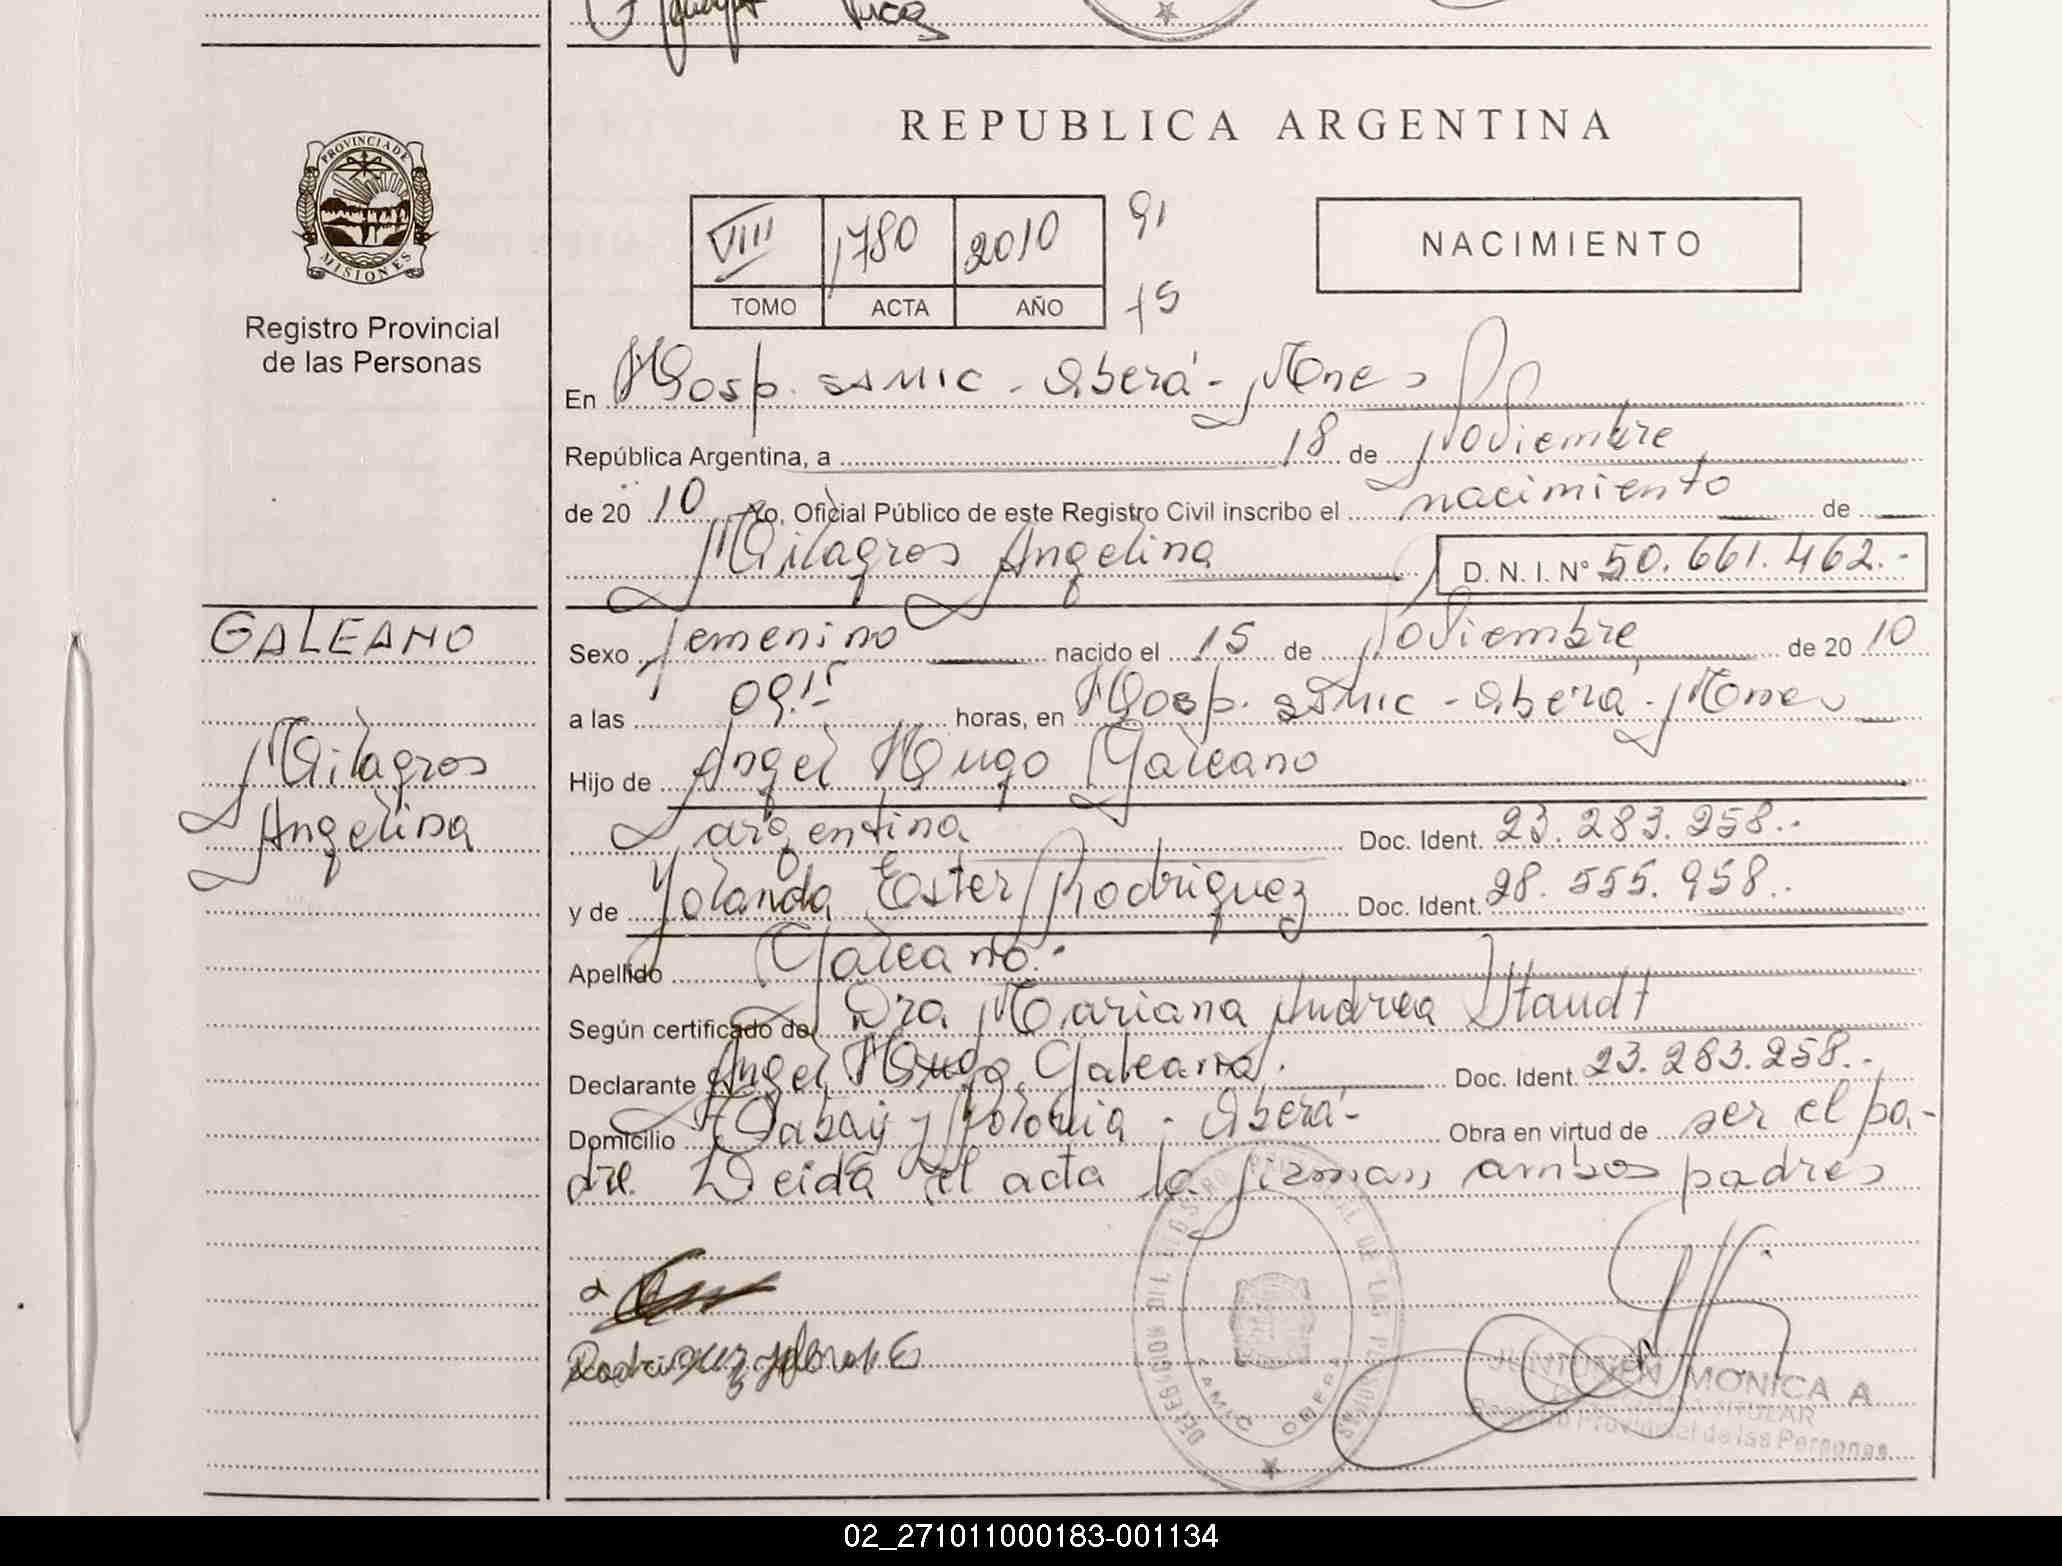 REPUBLICA ARGENTINA
PROVINCIA DE
MISIONES
Registro Provincial
de las Personas
VIII 1780 2010 91
TOMO ACTA AÑO 15
NACIMIENTO
En Hosp. SAMIC - Oberá - Mnes
República Argentina, a 18 de Noviembre
de 20 10 Yo, Oficial Público de este Registro Civil inscribo el nacimiento de
Milagros Angelina D. N. I. Nº 50.661.462.-
GALEANO
Milagros
Angelina
Sexo femenino nacido el 15 de Noviembre de 20 10
a las 09.15 horas, en Hosp. SAMIC - Oberá - Mnes
Hijo de Angel Hugo Galeano
argentina Doc. Ident. 23.283.258.-
y de Yolanda Ester Rodriguez Doc. Ident. 28.555.958.-
Apellido Galeano.-
Según certificado de Dra Mariana Andrea Staudt
Declarante Angel Hugo Galeano. Doc. Ident. 23.283.258.-
Domicilio Y Polonia - Oberá- Obra en virtud de ser el pa-
dre. Leida el acta la firman ambos padres
Rodriguez Yolanda E
SAMIC OBERA
MONICA A
TITULAR
Registro Provincial de las Personas
02_271011000183-001134